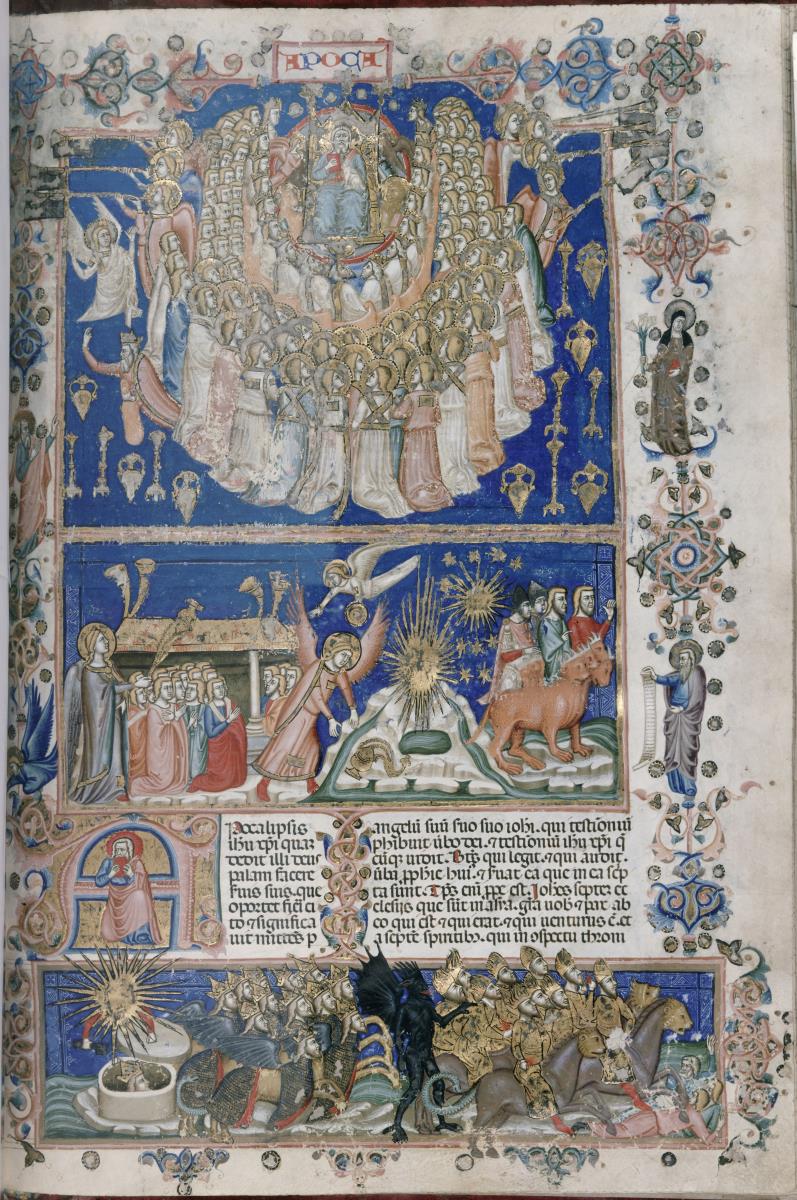 APOCA
Apocalipsis
ihu xpi quaz
dedit illi deus
palam facere
seruis suis. que
oportet fieri cito
& significa
uit mittens p
angelũ suũ suo iohi. qui testimoniũ
phibuit ũbo dei. & testimoniũ ihu xpi q̃
cũq; uidit. Bt̃s qui legit. & qui audit.
ũba pphie hui. & seruat ea que in ea scp
ta sunt. Tp̃s eni ppe est. Iohes septez ec
clesijs que sũt in asia. gr̃a uob & pax ab
eo qui est & qui erat. & qui uenturus ẽ. et
a septẽ spiritib;. qui in ospectu throni